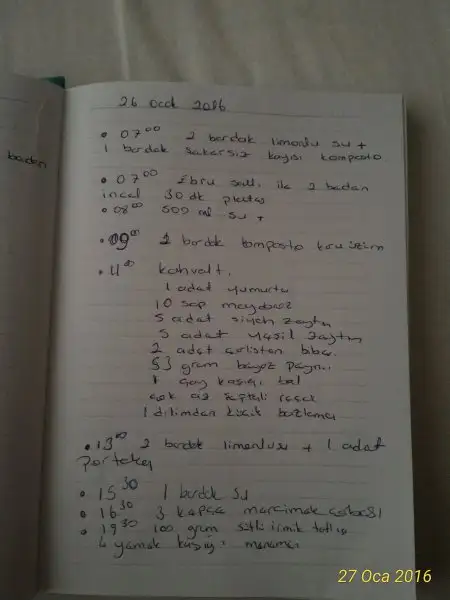 26 ocak 2016
baden
• 07⁰⁰ 2 bardak limonlu su +
1 bardak şekersiz kayısı komposto
• 07⁰⁰ Ebru Şallı ile 2 beden
incel 30 dk plates
• 08⁰⁰ 500 ml su +
• 09⁰⁰ 1 bardak komposto kuru üzüm
• 11⁰⁰ kahvaltı
1 adat yumurta
10 sap maydanoz
5 adat siyah zaytin
5 adat yaşil zaytin
2 adet çarliston biber
53 gram bayaz paynir
1 çay kaşıgı bal
çok az reçel
1 dilimdan küçük bazlama
• 13⁰⁰ 2 bardak limonlu su + 1 adat
Portakal
• 15³⁰ 1 bardak su
• 16³⁰ 3 kapça marcimak çorbası
• 19³⁰ 100 gram sütlü irmik tatlısı
4 yamak kaşığı manamaı
27 Oca 2016